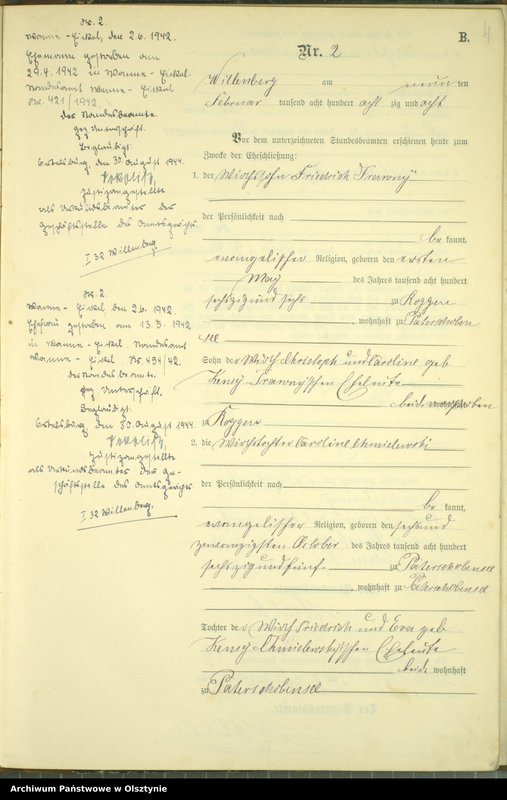 B.
4
Nr. 2
Willenberg am neun ten
Februar tausend acht hundert acht zig und acht
Vor dem unterzeichneten Standesbeamten erschienen heute zum
Zwecke der Eheschließung:
1. der Wirthssohn Friedrich Trawny
der Persönlichkeit nach
be kannt,
evangelischer Religion, geboren den ersten
May des Jahres tausend acht hundert
sechszig und sechs zu Roggen
, wohnhaft zu Paterschoben
see
Sohn des Wirth Christoph und Caroline geb
Trawny'schen Eheleute
beide verstorben
zu Roggen
2. die Wirthstochter Caroline Chmielewski
der Persönlichkeit nach
be kannt,
evangelischer Religion, geboren den sechs und
zwanzigsten October des Jahres tausend acht hundert
sechszig und fünf zu Paterschobensee
, wohnhaft zu Paterschobensee
Tochter des Wirth Friedrich und Eva geb
Chmielewski'schen Eheleute
beide wohnhaft
zu Paterschobensee
Nr. 2
Wanne-Eickel, den 2.6. 1942.
Ehemann gestorben am
29.4.1942 in Wanne-Eickel.
Standesamt Wanne-Eickel
Nr. 421/1942.
der Standesbeamte.
gez. Unterschrift.
Beglaubigt:
Ortelsburg, den 30. August 1944.
Justizangestellte
als Urkundsbeamter der
Geschäftsstelle des Amtsgerichts.
I 32 Willenberg
Nr. 2.
Wanne-Eickel, den 2.6. 1942.
Ehefrau gestorben am 13.5.1942
in Wanne-Eickel. Standesamt
Wanne-Eickel Nr. 454/42.
der Standesbeamte.
gez. Unterschrift.
Beglaubigt:
Ortelsburg, den 30. August 1944.
Justizangestellte
als Urkundsbeamter der Ge-
schäftsstelle des Amtsgerichts
I 32 Willenberg.
Archiwum Państwowe w Olsztynie